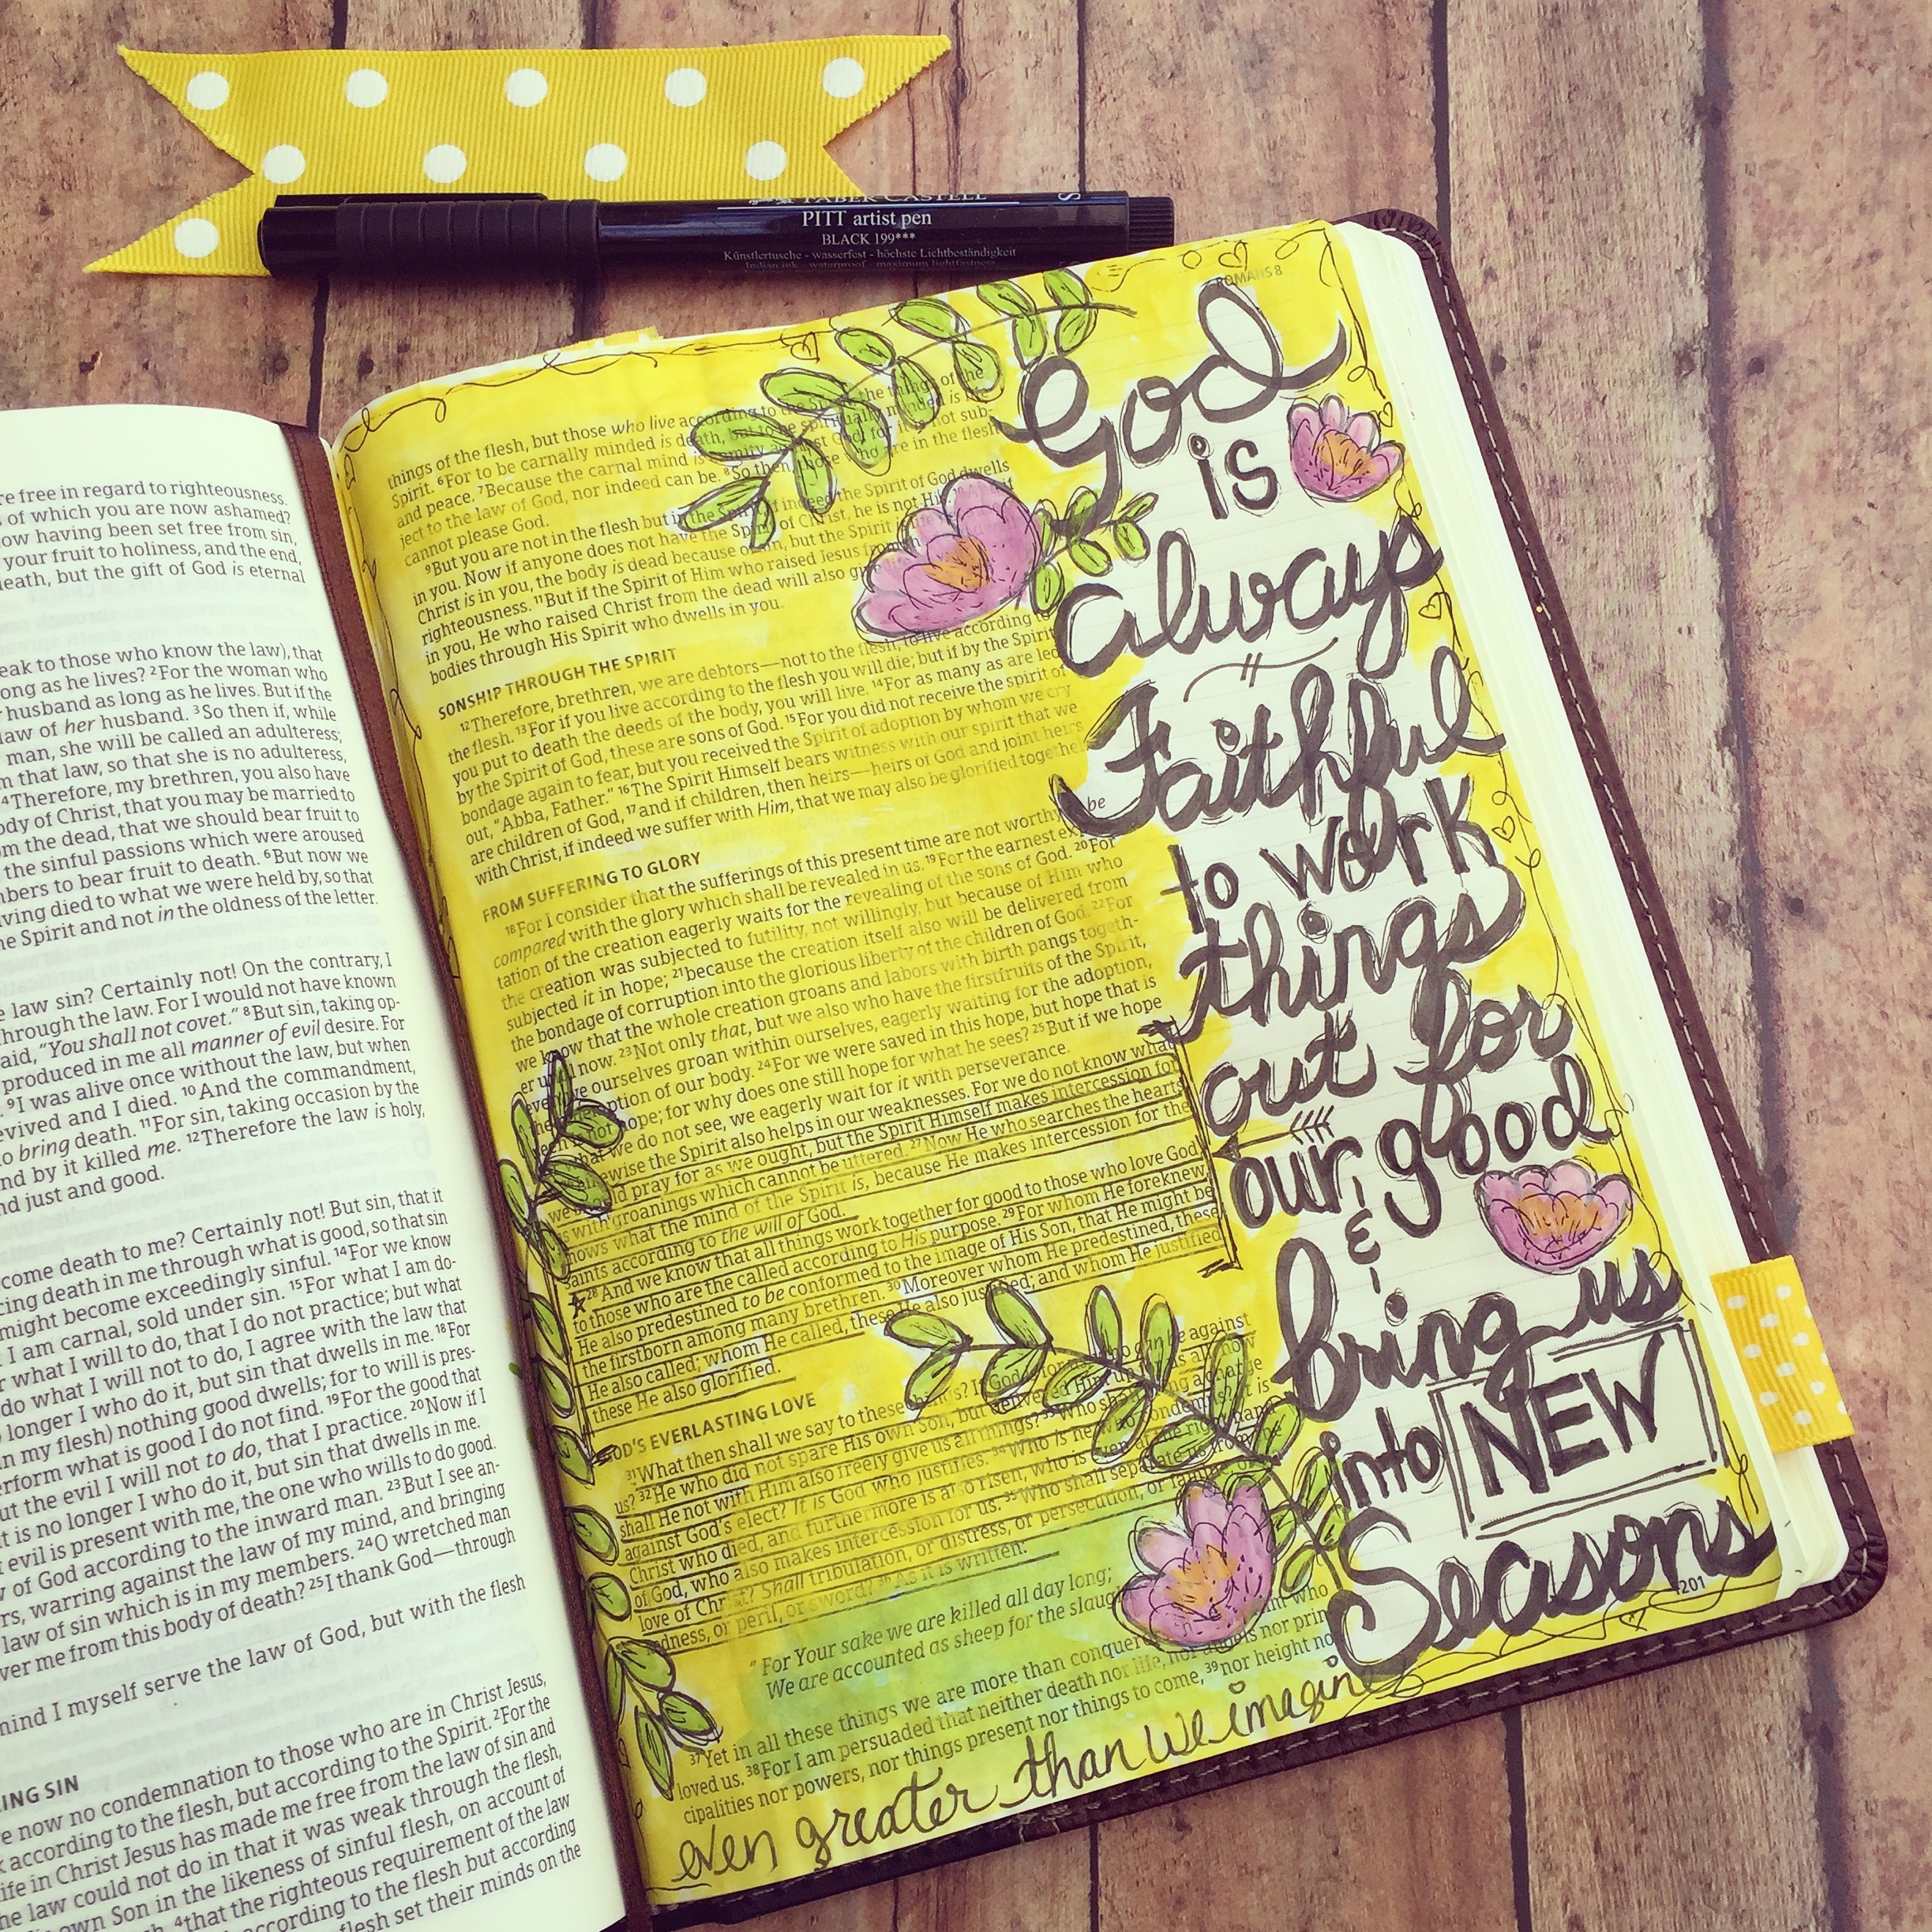 FABER-CASTELL
PITT artist pen
BLACK 199***
Künstlertusche - wasserfest - höchste Lichtbeständigkeit
Indian ink - waterproof - maximum lightfastness
S
re free in regard to righteousness.
of which you are now ashamed?
ow having been set free from sin,
your fruit to holiness, and the end,
death, but the gift of God is eternal
eak to those who know the law), that
ong as he lives? 2For the woman who
husband as long as he lives. But if the
law of her husband. 3So then if, while
man, she will be called an adulteress;
m that law, so that she is no adulteress,
4Therefore, my brethren, you also have
ody of Christ, that you may be married to
om the dead, that we should bear fruit to
the sinful passions which were aroused
bers to bear fruit to death. 6But now we
ving died to what we were held by, so that
he Spirit and not in the oldness of the letter.
e law sin? Certainly not! On the contrary, I
through the law. For I would not have known
aid, "You shall not covet." 8But sin, taking op-
produced in me all manner of evil desire. For
9I was alive once without the law, but when
evived and I died. 10And the commandment,
o bring death. 11For sin, taking occasion by the
nd by it killed me. 12Therefore the law is holy,
nd just and good.
come death to me? Certainly not! But sin, that it
cing death in me through what is good, so that sin
might become exceedingly sinful. 14For we know
I am carnal, sold under sin. 15For what I am do-
r what I will to do, that I do not practice; but what
do what I will not to do, I agree with the law that
longer I who do it, but sin that dwells in me. 18For
n my flesh) nothing good dwells; for to will is pres-
erform what is good I do not find. 19For the good that
ut the evil I will not to do, that I practice. 20Now if I
t is no longer I who do it, but sin that dwells in me.
evil is present with me, the one who wills to do good.
w of God according to the inward man. 23But I see an-
rs, warring against the law of my mind, and bringing
law of sin which is in my members. 24O wretched man
ver me from this body of death? 25I thank God—through
mind I myself serve the law of God, but with the flesh
ING SIN
e now no condemnation to those who are in Christ Jesus,
according to the flesh, but according to the Spirit. 2For the
life in Christ Jesus has made me free from the law of sin and
he law could not do in that it was weak through the flesh,
own Son in the likeness of sinful flesh, on account of
4that the righteous requirement of the law
according to the flesh but according
flesh set their minds on the
ROMANS 8
things of the flesh, but those who live according to the Spirit, the things of the
Spirit. 6For to be carnally minded is death, but to be spiritually minded is life
and peace. 7Because the carnal mind is enmity against God; for it is not sub-
ject to the law of God, nor indeed can be. 8So then, those who are in the flesh
cannot please God.
9But you are not in the flesh but in the Spirit, if indeed the Spirit of God dwells
in you. Now if anyone does not have the Spirit of Christ, he is not His.
Christ is in you, the body is dead because of sin, but the Spirit
righteousness. 11But if the Spirit of Him who raised Jesus
in you, He who raised Christ from the dead will also
bodies through His Spirit who dwells in you.
SONSHIP THROUGH THE SPIRIT
12Therefore, brethren, we are debtors—not to the flesh, to live according to
the flesh. 13For if you live according to the flesh you will die; but if by the Spirit
you put to death the deeds of the body, you will live. 14For as many as are led
by the Spirit of God, these are sons of God. 15For you did not receive the spirit of
bondage again to fear, but you received the Spirit of adoption by whom we cry
out, "Abba, Father." 16The Spirit Himself bears witness with our spirit that we
are children of God, 17and if children, then heirs—heirs of God and joint heirs
with Christ, if indeed we suffer with Him, that we may also be glorified together.
FROM SUFFERING TO GLORY
18For I consider that the sufferings of this present time are not worthy to be
compared with the glory which shall be revealed in us. 19For the earnest expec-
tation of the creation eagerly waits for the revealing of the sons of God. 20For
the creation was subjected to futility, not willingly, but because of Him who
subjected it in hope; 21because the creation itself also will be delivered from
the bondage of corruption into the glorious liberty of the children of God. 22For
we know that the whole creation groans and labors with birth pangs togeth-
er until now. 23Not only that, but we also who have the firstfruits of the Spirit,
even we ourselves groan within ourselves, eagerly waiting for the adoption,
the redemption of our body. 24For we were saved in this hope, but hope that is
not hope; for why does one still hope for what he sees? 25But if we hope
what we do not see, we eagerly wait for it with perseverance.
Likewise the Spirit also helps in our weaknesses. For we do not know what
we should pray for as we ought, but the Spirit Himself makes intercession for
us with groanings which cannot be uttered. 27Now He who searches the hearts
knows what the mind of the Spirit is, because He makes intercession for the
saints according to the will of God.
28And we know that all things work together for good to those who love God,
to those who are the called according to His purpose. 29For whom He foreknew,
He also predestined to be conformed to the image of His Son, that He might be
the firstborn among many brethren. 30Moreover whom He predestined, these
He also called; whom He called, these He also justified; and whom He justified,
these He also glorified.
GOD'S EVERLASTING LOVE
31What then shall we say to these things? If God is for us, who can be against
us? 32He who did not spare His own Son, but delivered Him up for us all, how
shall He not with Him also freely give us all things? 33Who shall bring a charge
against God's elect? It is God who justifies. 34Who is he who condemns? It is
Christ who died, and furthermore is also risen, who is even at the right hand
of God, who also makes intercession for us. 35Who shall separate us from the
love of Christ? Shall tribulation, or distress, or persecution, or famine, or
nakedness, or peril, or sword? 36As it is written:
"For Your sake we are killed all day long;
We are accounted as sheep for the slaughter."
37Yet in all these things we are more than conquerors through Him who
loved us. 38For I am persuaded that neither death nor life, nor angels nor prin-
cipalities nor powers, nor things present nor things to come, 39nor height nor
God
is
always
Faithful
to work
things
out for
our good
&
bring us
into NEW
Seasons
201
even greater than we imagine